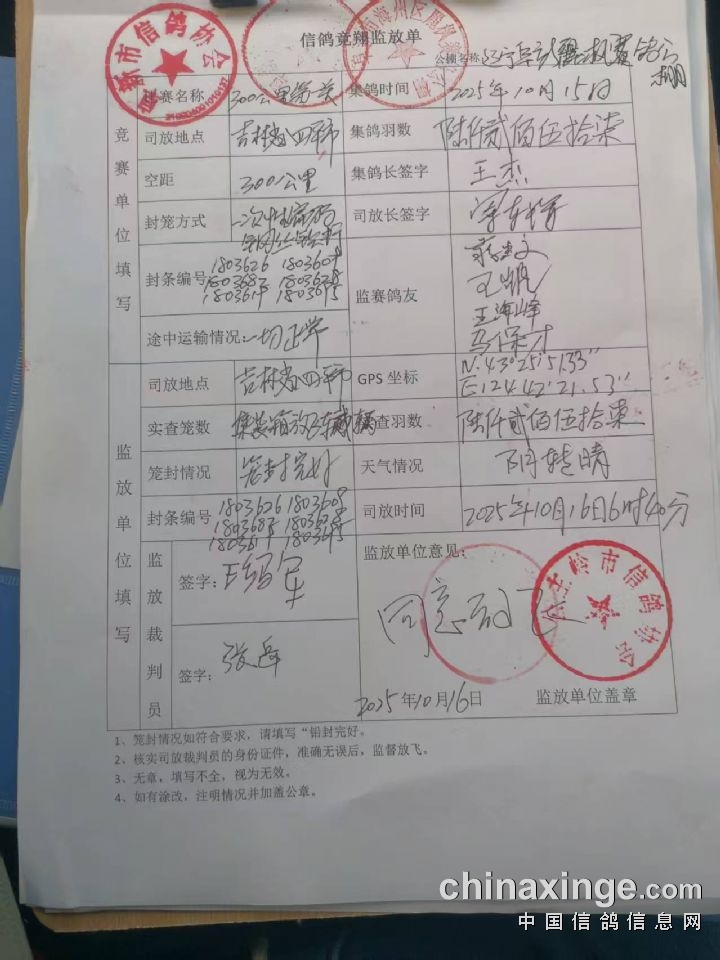 信鸽竞翔监放单
公棚名称
竞赛单位填写
竞赛名称 300公里
集鸽时间 2025年10月15日
司放地点 吉林省四平市
集鸽羽数 陆仟贰佰伍拾柒
空距 300公里
集鸽长签字 王杰
封笼方式 一次性
司放长签字
封条编号 1803626 1803608
1803683 1803628
1803615 1803695
监赛鸽友
王海峰
马保才
途中运输情况: 一切正常
监放单位填写
司放地点 吉林省四平市
GPS坐标 N:43°25′51.33″
E124°42′21.53″
实查笼数
查羽数 陆仟贰佰伍拾柒
笼封情况 笼封完好
天气情况 阴转晴
封条编号 1803626 1803608
1803683 1803628
司放时间 2025年10月16日6时40分
监放裁判员
签字:
签字: 张
监放单位意见:
同意放飞
2025年10月16日
监放单位盖章
市信鸽协会
主岭市信鸽协会
1、笼封情况如符合要求,请填写“铅封完好。
2、核实司放裁判员的身份证件,准确无误后,监督放飞。
3、无章,填写不全,视为无效。
4、如有涂改,注明情况并加盖公章。
chinaxinge.com
中国信鸽信息网